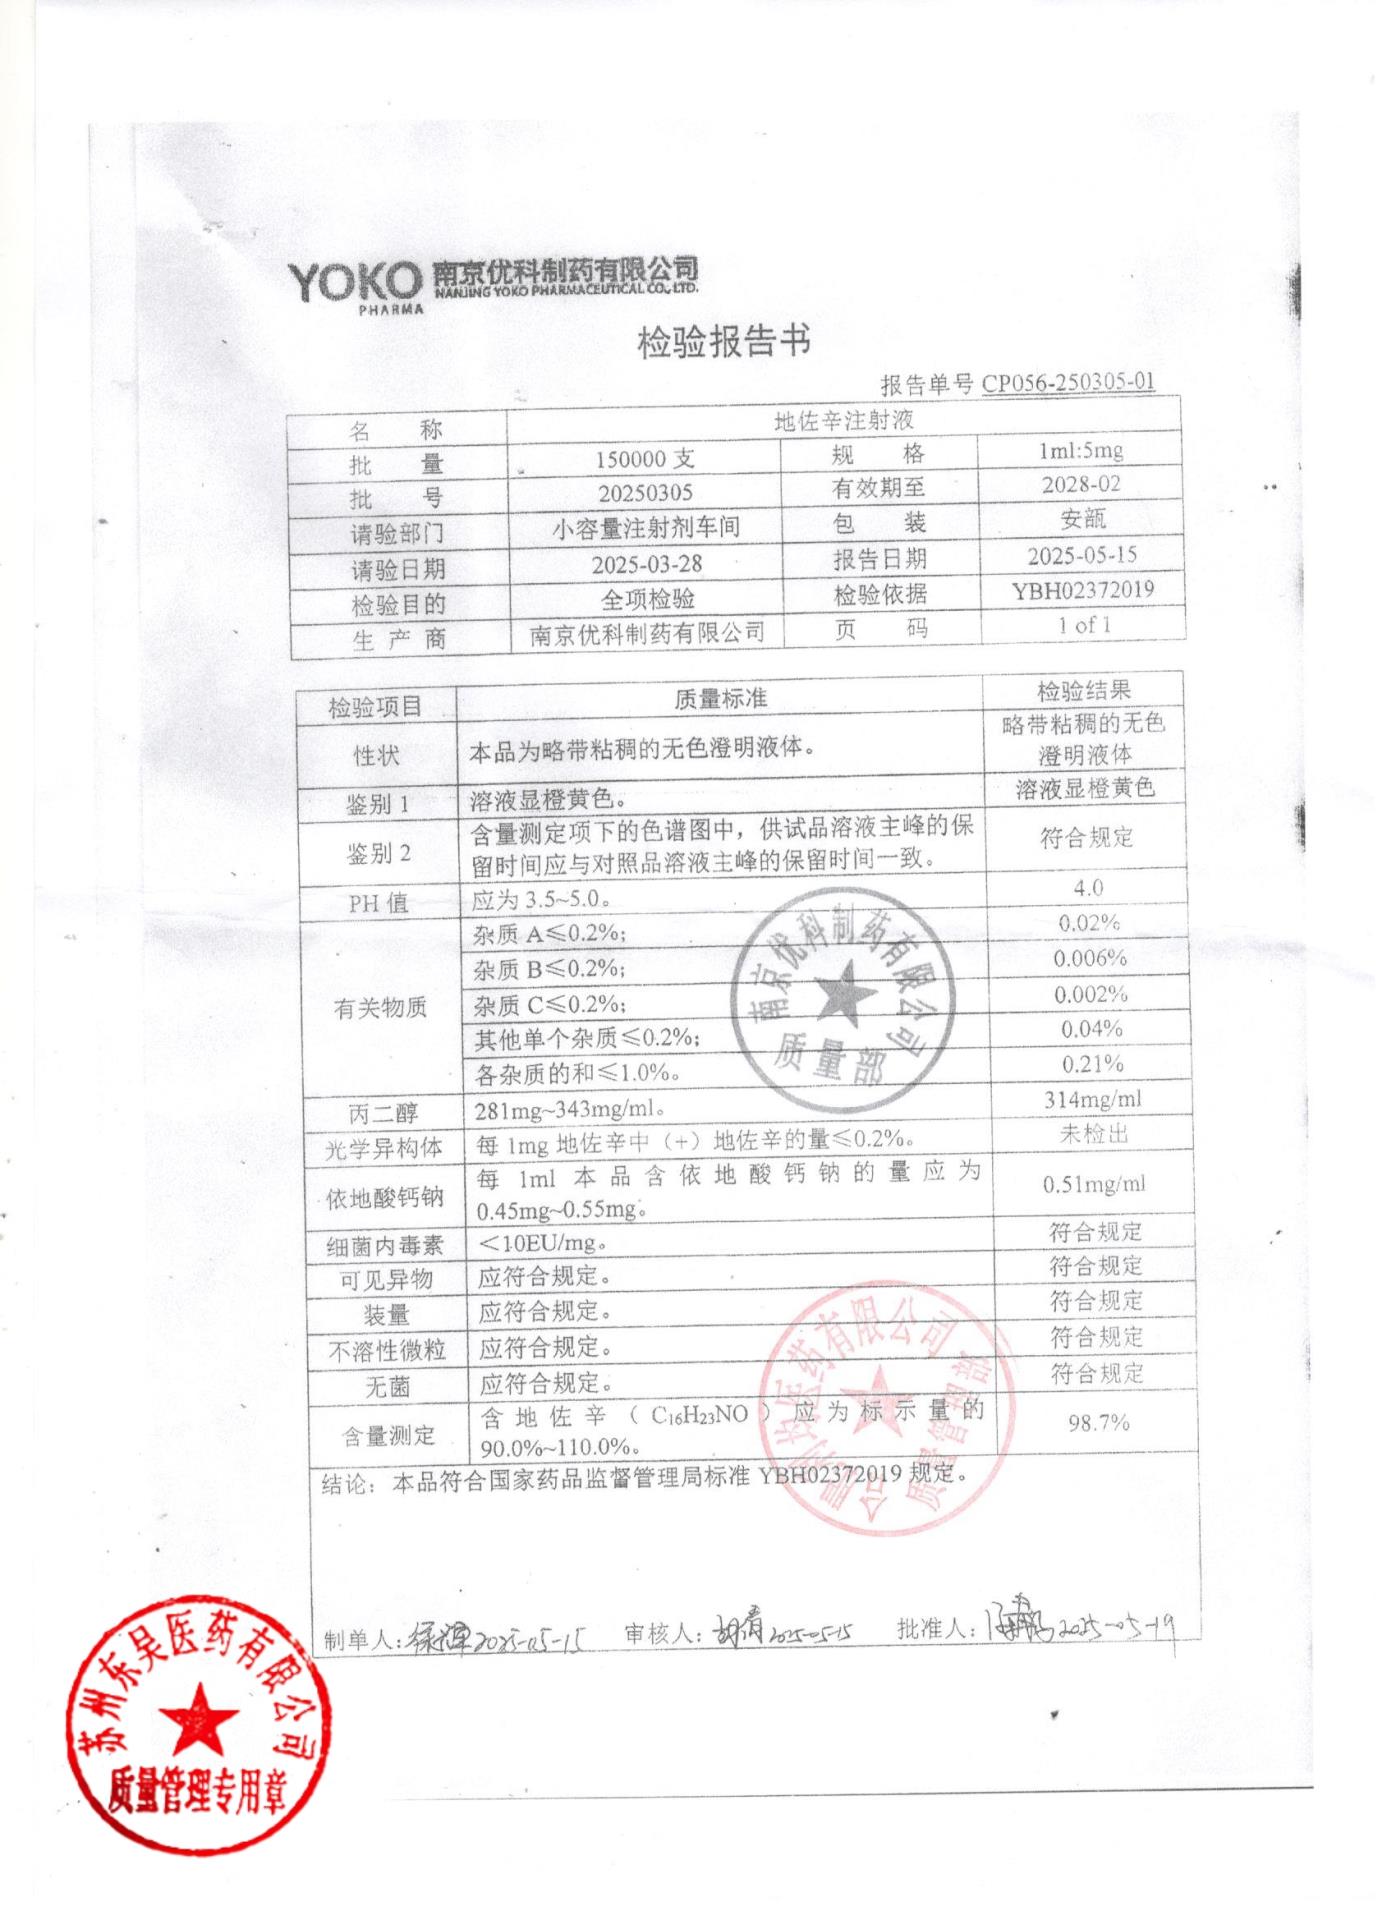 YOKO 南京优科制药有限公司
PHARMA NANJING YOKO PHARMACEUTICAL CO., LTD.
检验报告书
报告单号 CP056-250305-01
名 称 地佐辛注射液
批 量 150000 支 规 格 1ml:5mg
批 号 20250305 有效期至 2028-02
请验部门 小容量注射剂车间 包 装 安瓿
请验日期 2025-03-28 报告日期 2025-05-15
检验目的 全项检验 检验依据 YBH02372019
生 产 商 南京优科制药有限公司 页 码 1 of 1
检验项目 质量标准 检验结果
性状 本品为略带粘稠的无色澄明液体。 略带粘稠的无色
澄明液体
鉴别 1 溶液显橙黄色。 溶液显橙黄色
鉴别 2 含量测定项下的色谱图中，供试品溶液主峰的保
留时间应与对照品溶液主峰的保留时间一致。 符合规定
PH 值 应为 3.5~5.0。 4.0
有关物质 杂质 A≤0.2%; 0.02%
杂质 B≤0.2%; 0.006%
杂质 C≤0.2%; 0.002%
其他单个杂质≤0.2%; 0.04%
各杂质的和≤1.0%。 0.21%
丙二醇 281mg~343mg/ml。 314mg/ml
光学异构体 每 1mg 地佐辛中（+）地佐辛的量≤0.2%。 未检出
依地酸钙钠 每 1ml 本品含依地酸钙钠的量应为
0.45mg~0.55mg。 0.51mg/ml
细菌内毒素 <10EU/mg。 符合规定
可见异物 应符合规定。 符合规定
装量 应符合规定。 符合规定
不溶性微粒 应符合规定。 符合规定
无菌 应符合规定。 符合规定
含量测定 含地佐辛（C₁₆H₂₃NO）应为标示量的
90.0%~110.0%。 98.7%
结论：本品符合国家药品监督管理局标准 YBH02372019 规定。
制单人: 2025-05-15 审核人: 胡倩 2025-05-15 批准人: 2025-05-19
南京优科制药有限公司
质量部
医药有限公司
质量管理部
苏州东吴医药有限公司
质量管理专用章